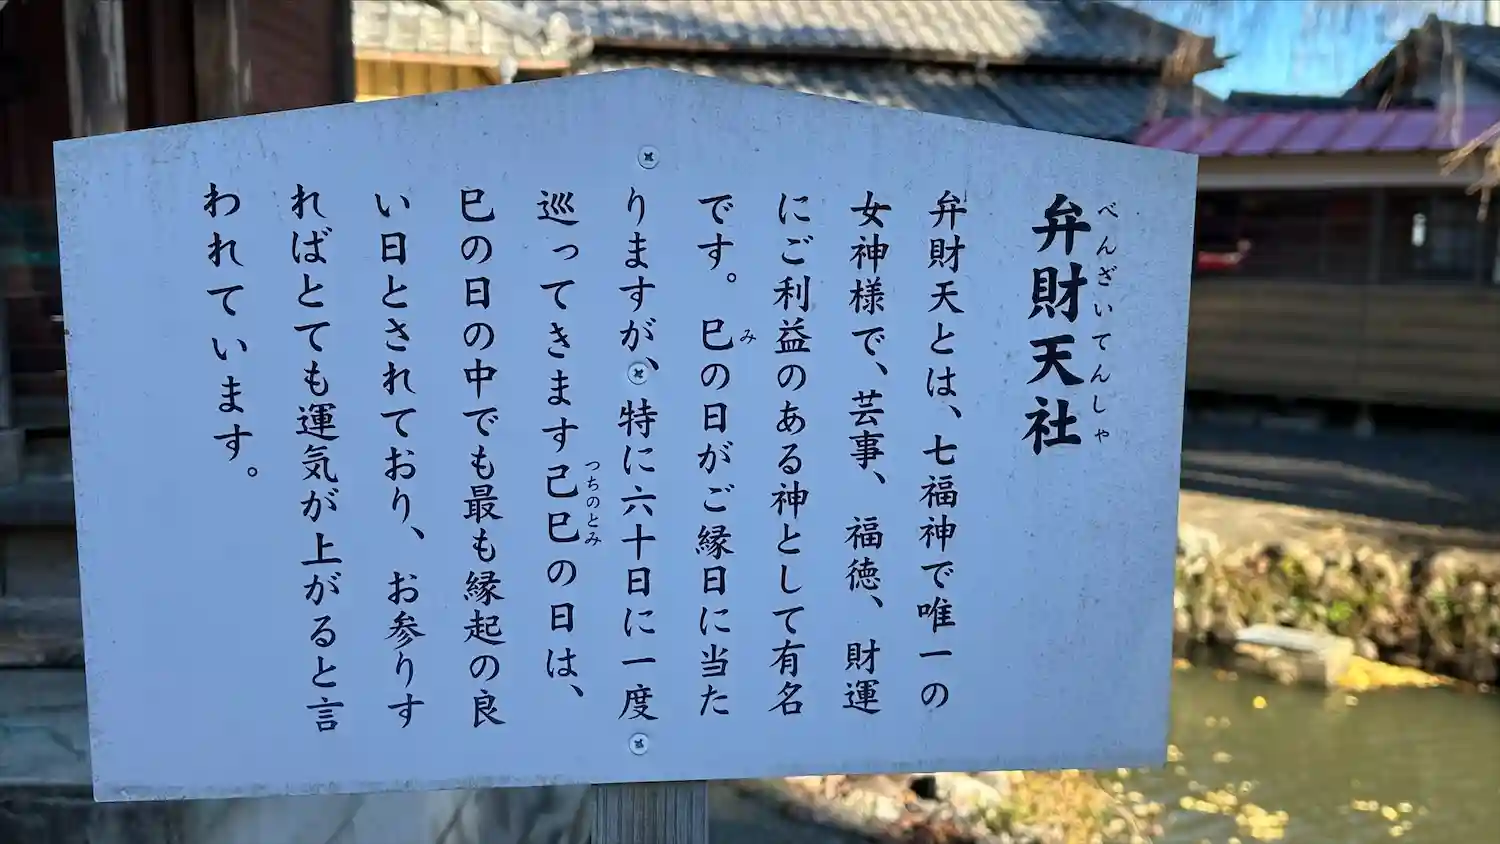 弁財天社
べんざいてんしゃ
弁財天とは、七福神で唯一の
女神様で、芸事、福徳、財運
にご利益のある神として有名
です。巳の日がご縁日に当た
み
りますが、特に六十日に一度
巡ってきます己巳の日は、
つちのとみ
巳の日の中でも最も縁起の良
い日とされており、お参りす
ればとても運気が上がると言
われています。